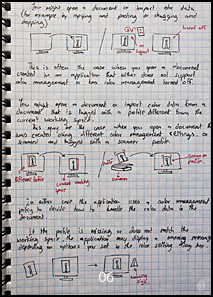 You might open a document or import color data
(for example by copying and pasting or dragging and
dropping).
turned off
This is often the case when you open a document
created in an application that either does not support
color management or has color management turned off.
You might open a document or import color data from a
document that is tagged with a profile different from the
current working space.
This may be the case when you open a document that
was created using different color management settings, or
scanned and tagged with a scanner profile.
different profile
current working space
scanner
scanner profile
In either case the application uses a color management
policy to decide how to handle the color data in the
document.
If the profile is missing or does not match the
working space the application may display a warning message
depending on options you set in the color setting dialog box.
06